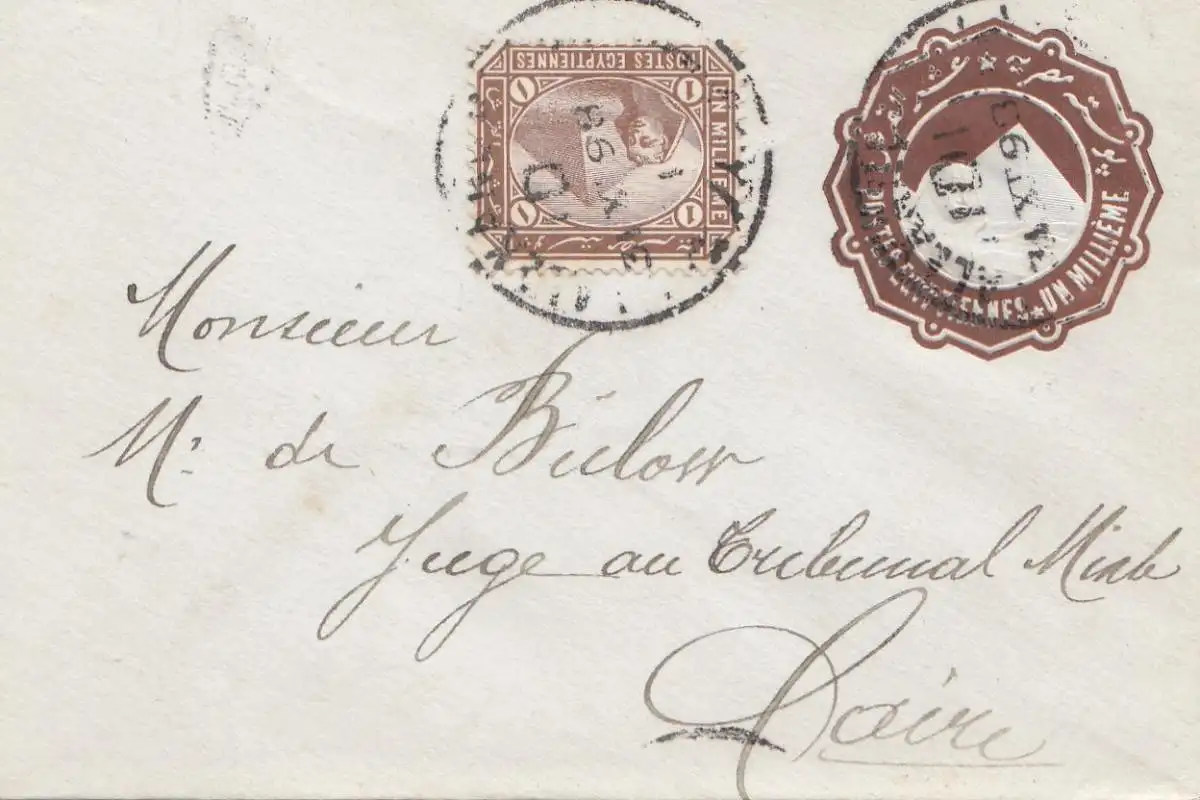 POSTES EGYPTIENNES
UN MILLIEME
1 1
1 1
بوستة مصرية
POSTES EGYPTIENNES ★ UN MILLIÈME
Monsieur
Mr de Bülow
Juge au Tribunal Mixte
Caire